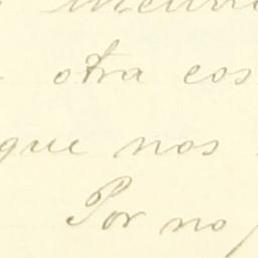 otra cos
que nos
Por no